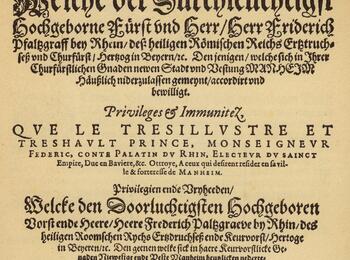 Welche der Durchleuchtigst
Hochgeborne Fürst vnd Herr/Herr Friderich
Pfaltzgraff bey Rhein/ deß heiligen Römischen Reichs Ertztruch-
seß vnd Churfürst/ Hertzog in Beyern/ꝛc. Den jenigen/ welche sich in Ihrer
Churfürstlichen Gnaden newen Stadt vnd Vestung MANHEIM
Häußlich niderzulassen gemeynt/ accordirt vnd
bewilligt.
Privileges & Immunitez,
QVE LE TRESILLVSTRE ET
TRESHAVLT PRINCE, MONSEIGNEVR
FEDERIC, CONTE PALATIN DV RHIN, ELECTEVR DV SAINCT
Empire, Due en Baviere, &c. Ottroye, A ceux qui desirent resider en sa vil-
le & forteresse de MANHEIM.
Privilegien ende Vryheeden/
Welcke den Doorluchtigsten Hochgeboren
Vorst ende Heere/ Heere Frederich Paltzgraeve by Rhin/ des
heiligen Roomschen Rychs Erzdruchseß ende Keurvorst/ Hertoge
in Beyeren/ ꝛc. Den genen welke sich in haere Keurvorstlick Ge-
naden Nieuwe ende Veste Manheim heuslicken nederte-